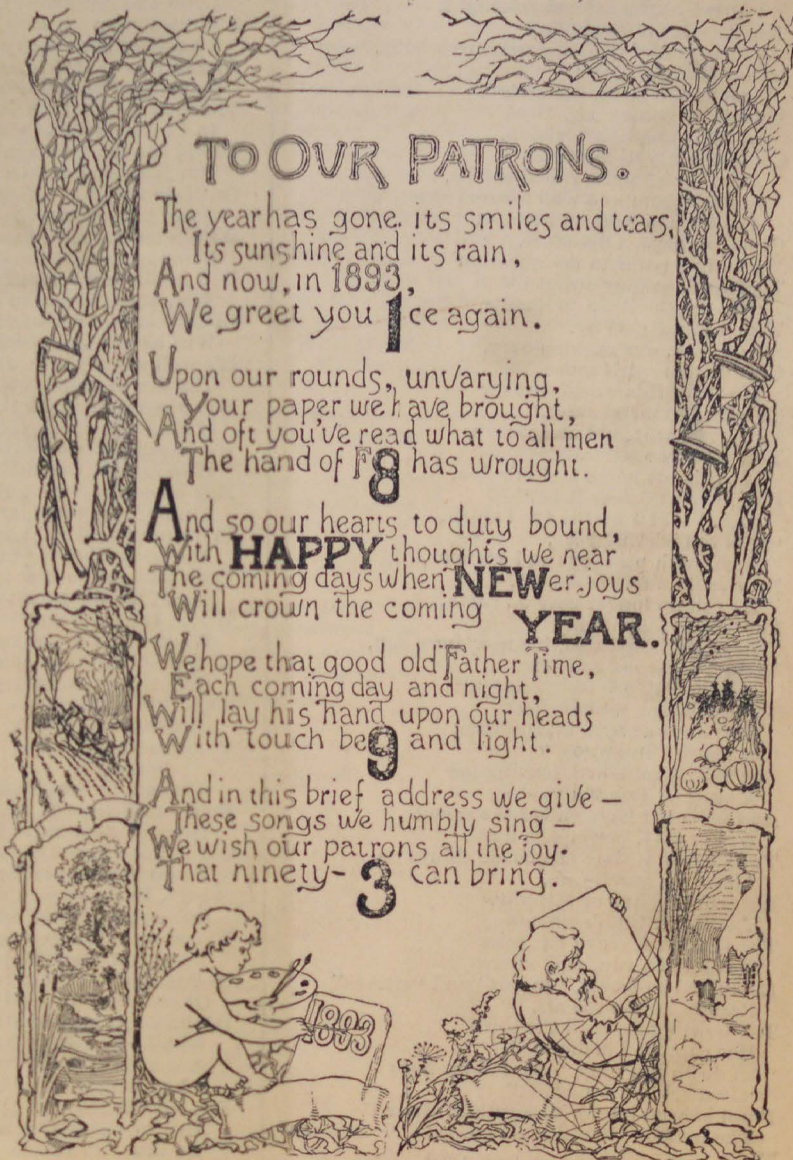 TO OUR PATRONS.
The year has gone, its smiles and tears,
Its sunshine and its rain,
And now, in 1893,
We greet you 1ce again.
Upon our rounds, unvarying,
Your paper we have brought,
And oft you've read what to all men
The hand of F8 has wrought.
And so our hearts, to duty bound,
With HAPPY thoughts we near
The coming days when NEWer joys
Will crown the coming YEAR.
We hope that good old Father Time,
Each coming day and night,
Will lay his hand upon our heads
With touch be9 and light.
And in this brief address we give —
These songs we humbly sing —
We wish our patrons all the joy.
That ninety-3 can bring.
1893